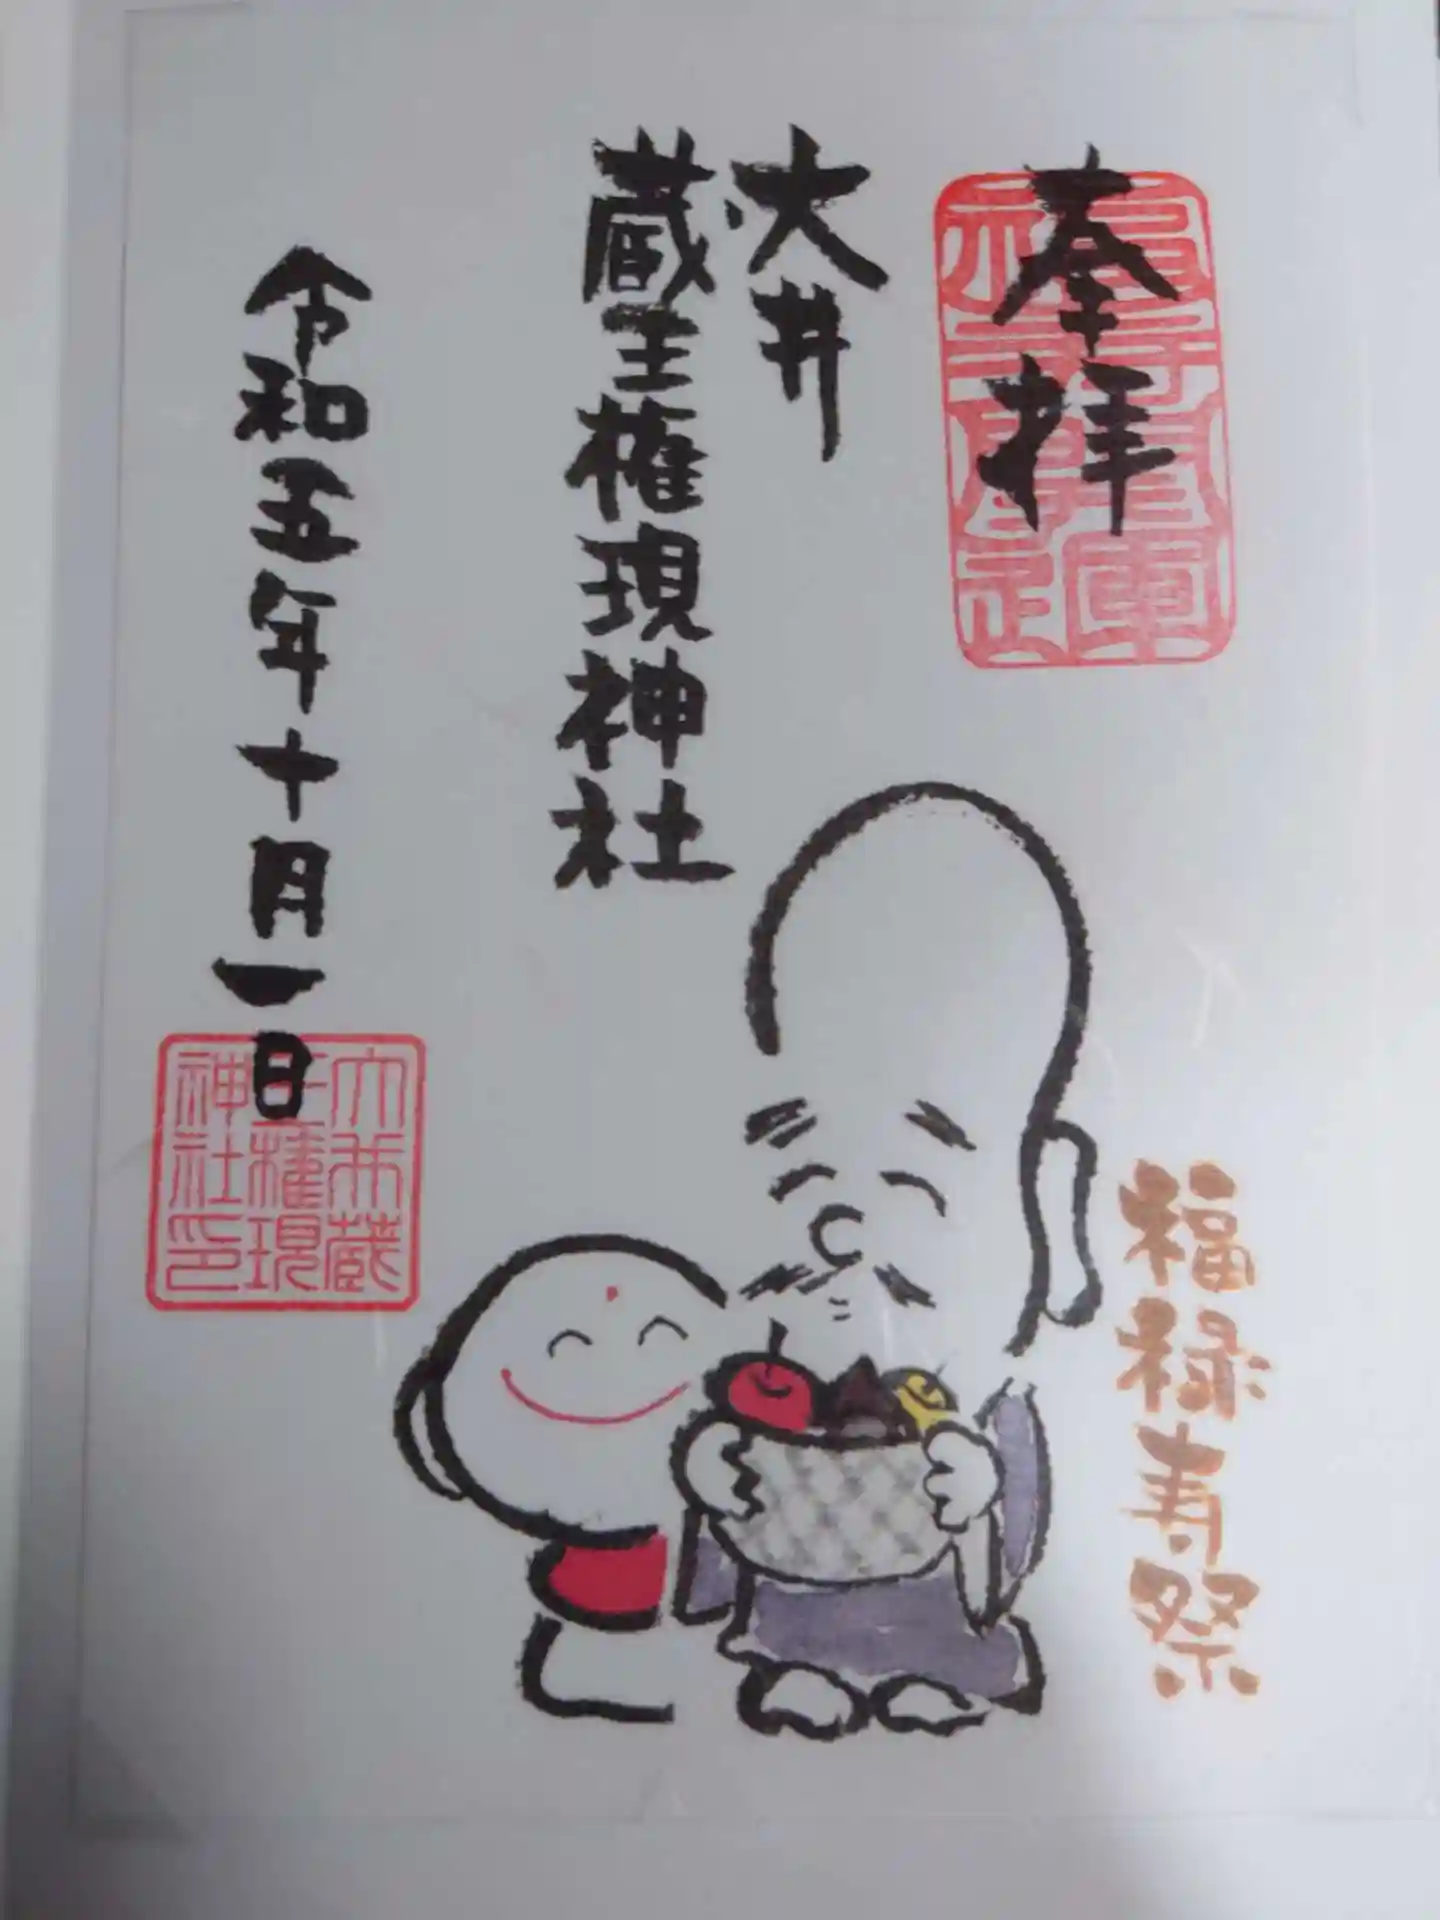 奉拝
大井
蔵王権現神社
令和五年十月一日
大井蔵
王権現
神社印
福禄寿祭